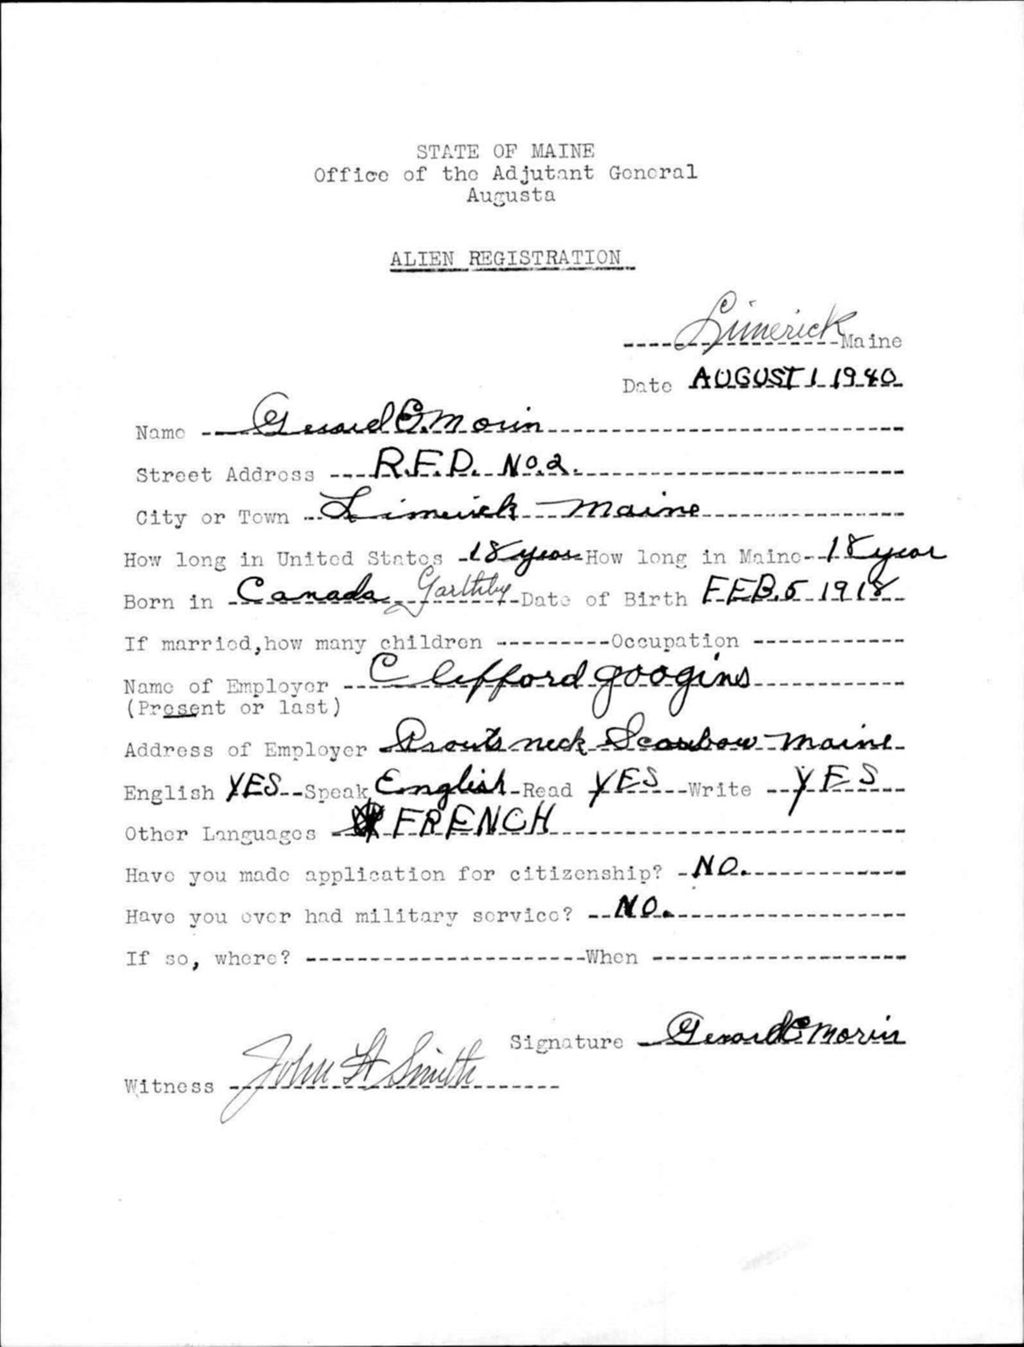 STATE OF MAINE
Office of the Adjutant General
Augusta
ALIEN REGISTRATION
Limerick Maine
Date AUGUST 1 1940
Name Gerard E. Morin
Street Address R.F.D. No.2.
City or Town Limerick Maine
How long in United States 18 years How long in Maine 18 year
Born in Canada Garthby Date of Birth FEB. 5 1918
If married, how many children Occupation
Name of Employer Clefford googins
(Present or last)
Address of Employer Prouts neck Scarbow Maine
English YES Speak English Read YES Write YES
Other Languages FRENCH
Have you made application for citizenship? NO.
Have you ever had military service? NO.
If so, where? When
Signature Gerard E Morin
Witness John H Smith